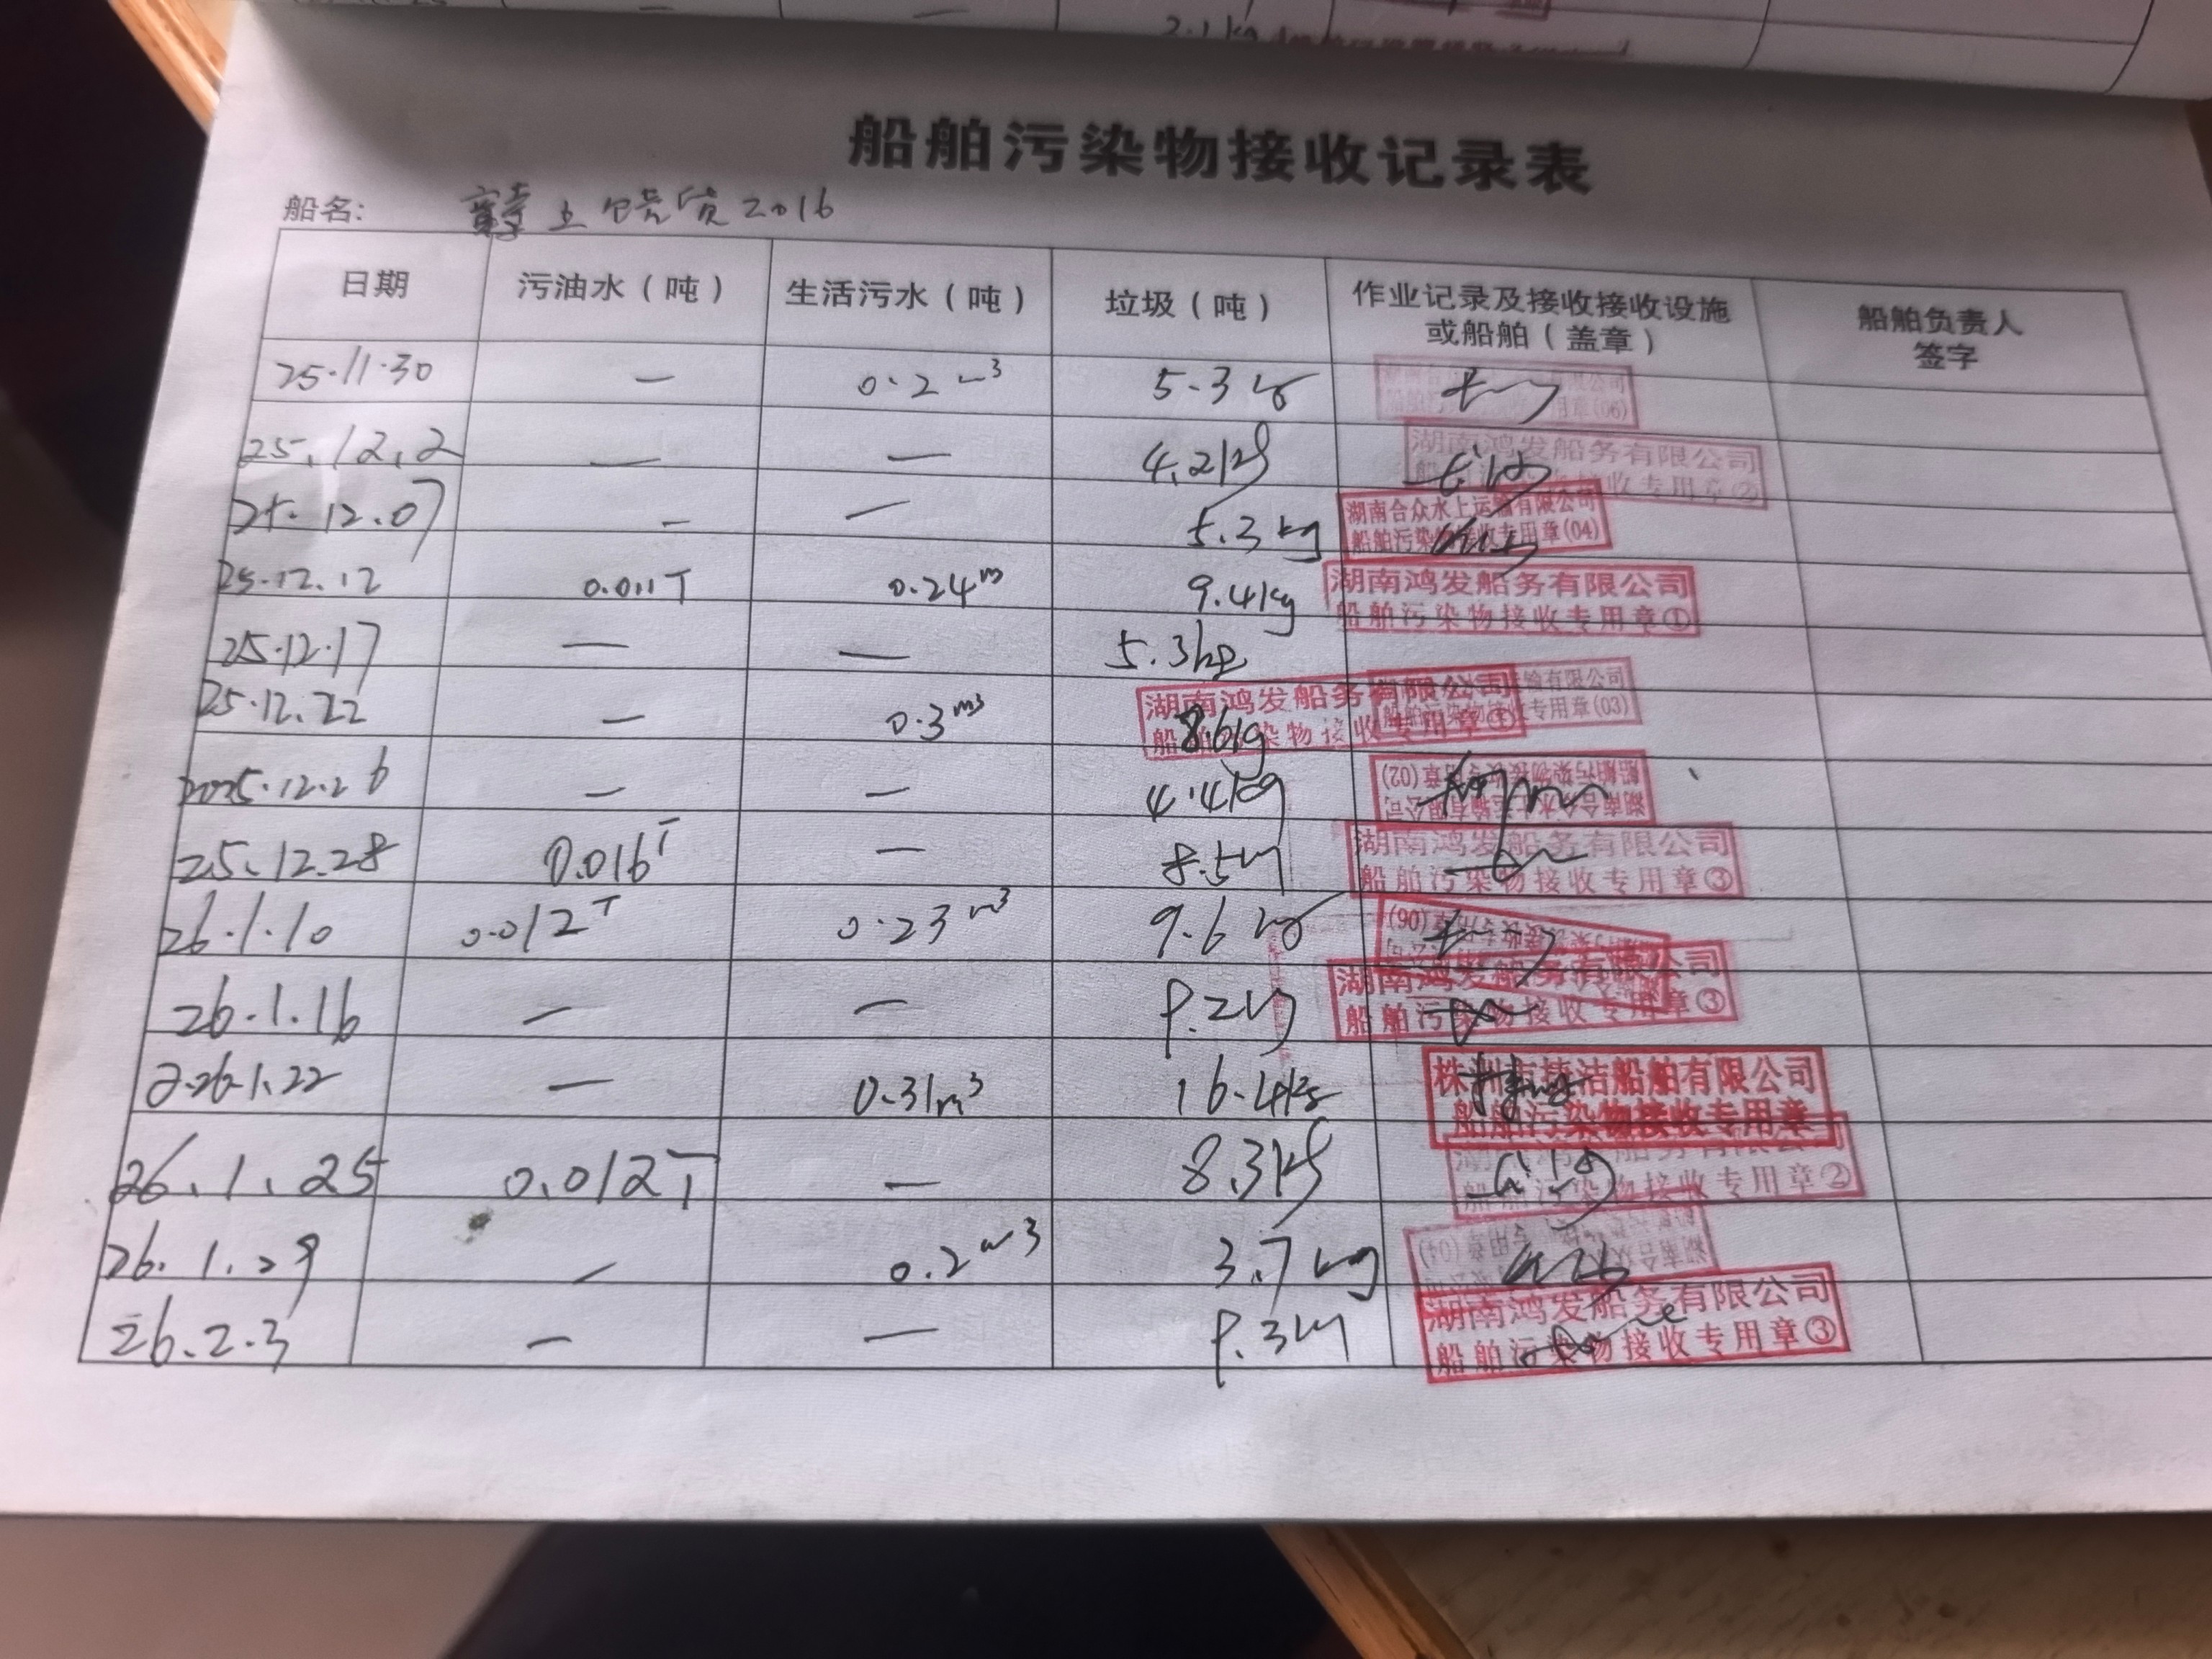 2.1kg
船舶污染物接收记录表
船名: 2016
日期 污油水（吨） 生活污水（吨） 垃圾（吨） 作业记录及接收接收设施或船舶（盖章） 船舶负责人签字
25.11.30 — 0.2m³ 5.3kg 有限公司 用章(06)
25.12.2 — — 4.2kg 湖南鸿发船务有限公司 船 收专用章②
25.12.07 — — 5.3kg 湖南合众水上运输有限公司 船舶污染物接收专用章(04)
25.12.12 0.011T 0.24m 9.4kg 湖南鸿发船务有限公司 船舶污染物接收专用章①
25.12.17 — — 5.3kg 运输有限公司 专用章(03)
25.12.22 — 0.3m³ 8.6kg 湖南鸿发船务有限公司 船舶污染物接收专用章①
2025.12.26 — — 4.4kg 湖南合众水上运输有限公司 船舶污染物接收专用章(02)
25.12.28 0.016T — 8.5kg 湖南鸿发船务有限公司 船舶污染物接收专用章③
26.1.10 0.012T 0.23m³ 9.6kg 船舶污染物接收专用章(06)
26.1.16 — — 9.2kg 湖南鸿发船务有限公司 船舶污染物接收专用章③
26.1.22 — 0.31m³ 16.4kg 株洲市捷洁船舶有限公司 船舶污染物接收专用章
26.1.25 0.012T — 8.3kg 船务有限公司 船舶污染物接收专用章②
26.1.29 — 0.2m³ 3.7kg 湖南合众 专用章(04)
26.2.3 — — 9.3kg 湖南鸿发船务有限公司 船舶污染物接收专用章③